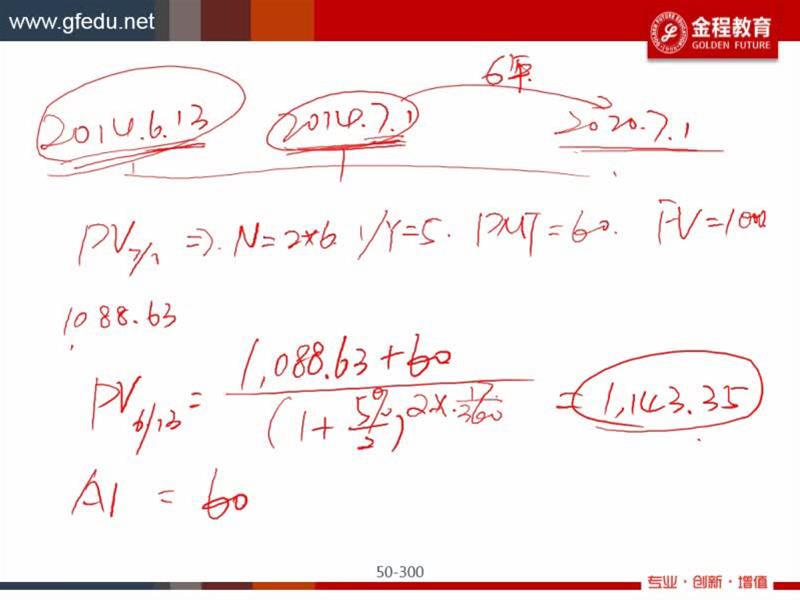 www.gfedu.net
金程教育
GOLDEN FUTURE
6年
2014.6.13 2014.7.1 2020.7.1
PV7/1 ⇒ N=2×6 I/Y=5. PMT=60. FV=1000
1088.63
PV6/13 = (1,088.63+60) / (1+5%/2)^2×.17/360 = 1,143.35
AI = 60
50-300
专业·创新·增值